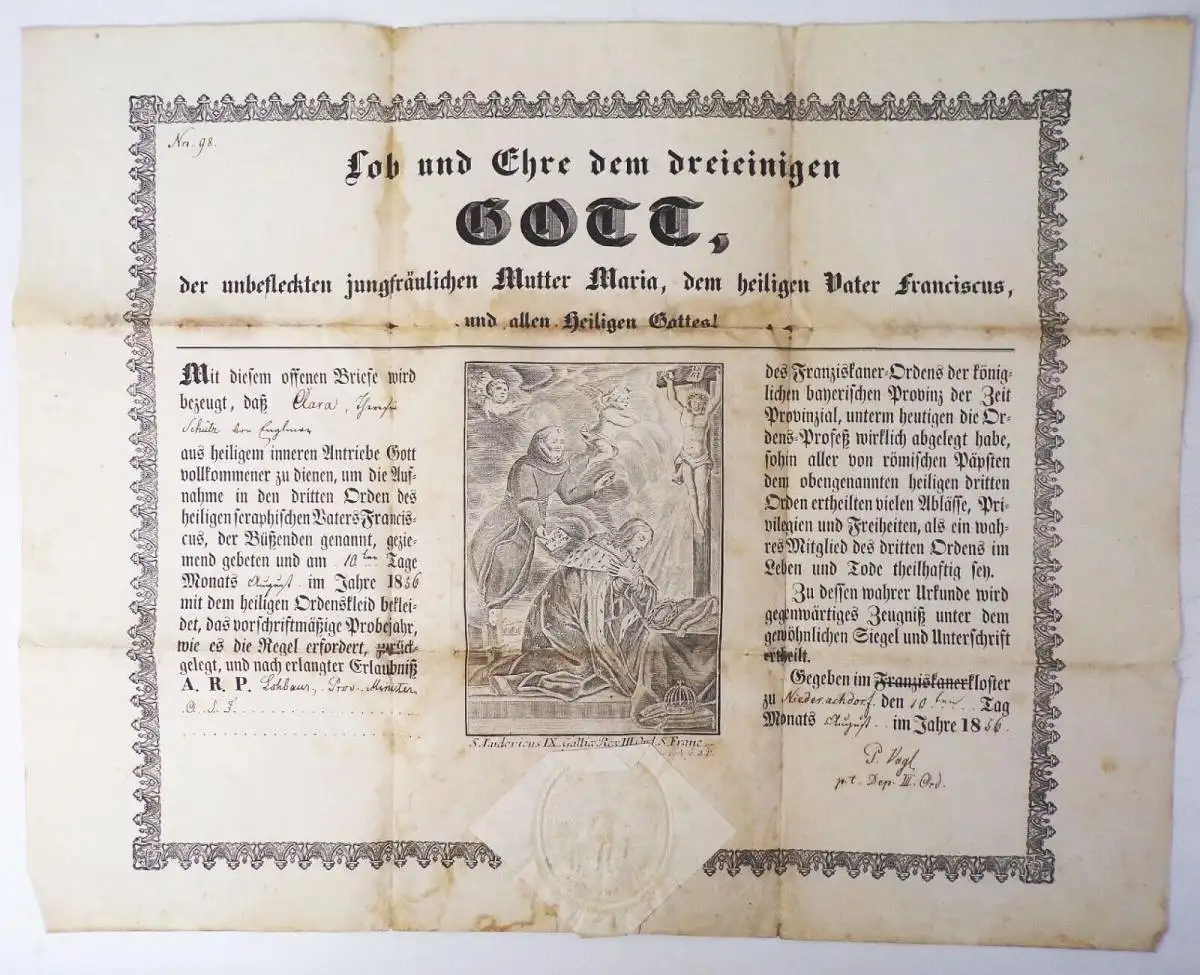 Nro. 98.
Lob und Ehre dem dreieinigen
GOTT,
der unbefleckten jungfräulichen Mutter Maria, dem heiligen Vater Franciscus,
und allen Heiligen Gottes!
Mit diesem offenen Briefe wird
bezeugt, daß Clara, Theresia
Schülz von Englmar
aus heiligem inneren Antriebe Gott
vollkommener zu dienen, um die Auf-
nahme in den dritten Orden des
heiligen seraphischen Vaters Francis-
cus, der Büßenden genannt, gezie-
mend gebeten und am 10ten Tage
Monats August im Jahre 1856
mit dem heiligen Ordenskleid beklei-
det, das vorschriftmäßige Probejahr,
wie es die Regel erfordert, zurück-
gelegt, und nach erlangter Erlaubniß
A. R. P. Prov. Minister
O. S. F.
S. Ludovicus IX. Galliæ Rex III. Ord. S. Franc
des Franziskaner-Ordens der könig-
lichen bayerischen Provinz der Zeit
Provinzial, unterm heutigen die Or-
dens-Profeß wirklich abgelegt habe,
sohin aller von römischen Päpsten
dem obengenannten heiligen dritten
Orden ertheilten vielen Ablässe, Pri-
vilegien und Freiheiten, als ein wah-
res Mitglied des dritten Ordens im
Leben und Tode theilhaftig sey.
Zu dessen wahrer Urkunde wird
gegenwärtiges Zeugniß unter dem
gewöhnlichen Siegel und Unterschrift
ertheilt.
Gegeben im Franziskanerkloster
zu Niederachdorf den 10ten Tag
Monats August im Jahre 1856.
P. Vogl
p. t. Dep. III. Ord.